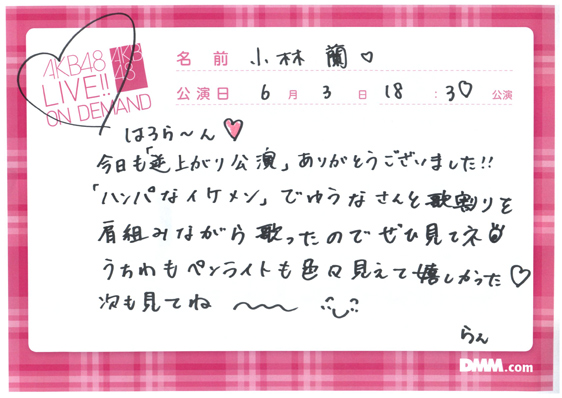 AKB48
LIVE!!
ON DEMAND
AKB
48
名前 小林 蘭♡
公演日 6月3日 18:30公演
はろら〜ん♡
今日も「逆上がり公演」ありがとうございました!!
「ハンパなイケメン」でゆうなさんと歌割りを
肩組みながら歌ったのでぜひ見てネ
うちわもペンライトも色々見えて嬉しかった♡
次も見てね 〜〜
らん
DMM.com